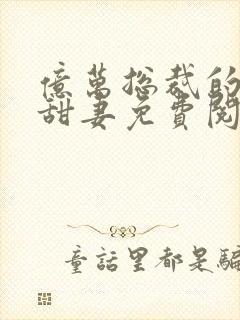 億萬總裁的
甜妻免費閱
童話里都是騙